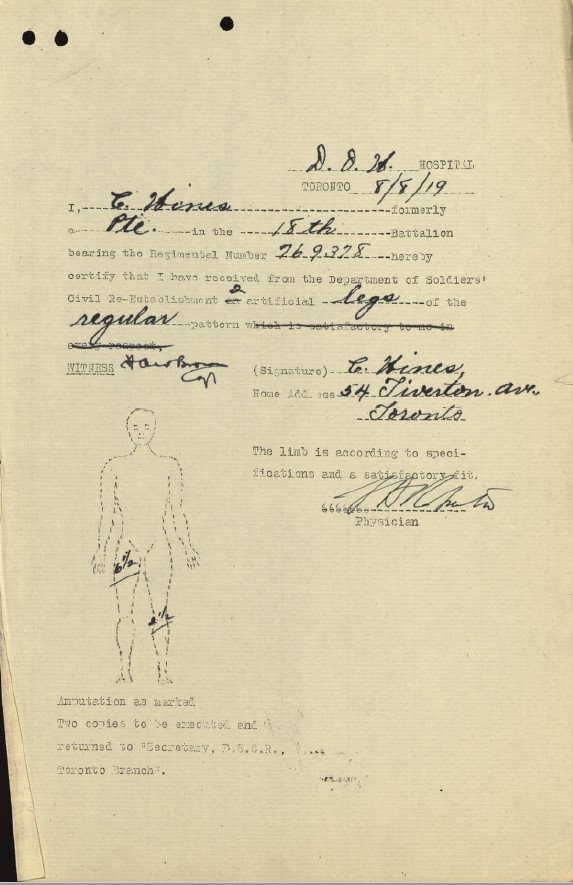 D. O. H. HOSPITAL
TORONTO 8/8/19
I, C. Hines formerly
a Pte. in the 18th Battalion
bearing the Regimental Number 769378 hereby
certify that I have received from the Department of Soldiers'
Civil Re-Establishment an 2 artificial legs of the
regular pattern which is satisfactory to me in
every respect.
WITNESS
(Signature) C. Hines,
Home Address 54 Tiverton. Ave.
Toronto
The limb is according to speci-
fications and a satisfactory fit.
Physician
6½
2½
Amputation as marked
Two copies to be executed and
returned to "Secretary, D.S.C.R.,
Toronto Branch".